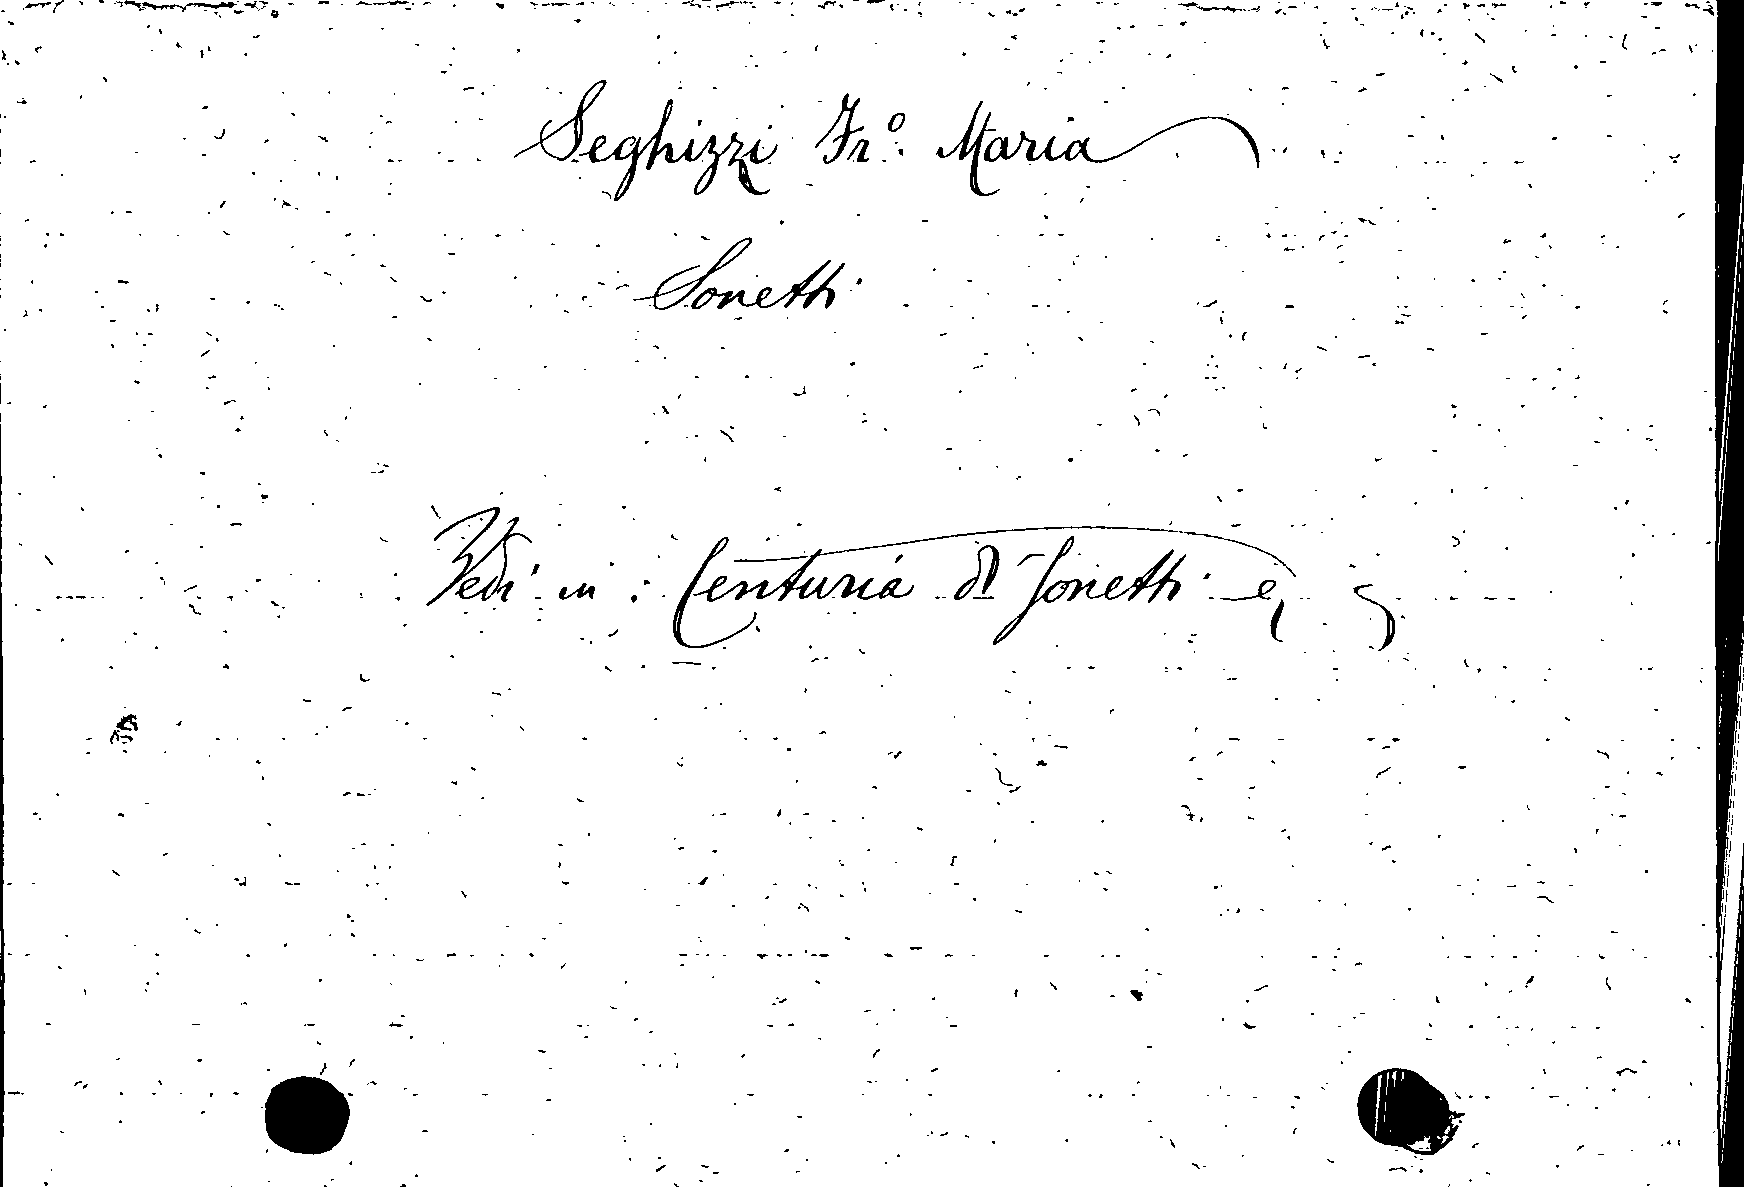 Seghizzi Fr.º Maria
Sonetti
Vedi in: Centuria di Sonetti